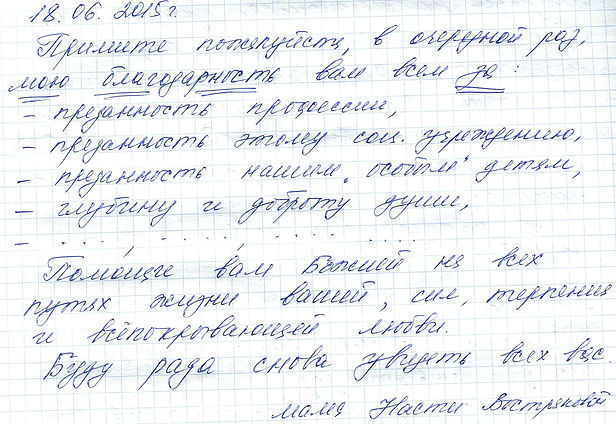 18.06.2015г.
Примите пожалуйста, в очередной раз,
мою благодарность вам всем за:
– преданность процессии,
– преданность этому соц. учреждению,
– преданность нашим "особым" детям,
– глубину и доброту души,
– . . . . . , . . . . . . , . . . . . . . . .
Помощи вам Божией на всех
путях жизни вашей, сил, терпения
и всёпокрывающей любви.
Буду рада снова увидеть всех вас.
мама Насти Востряковой